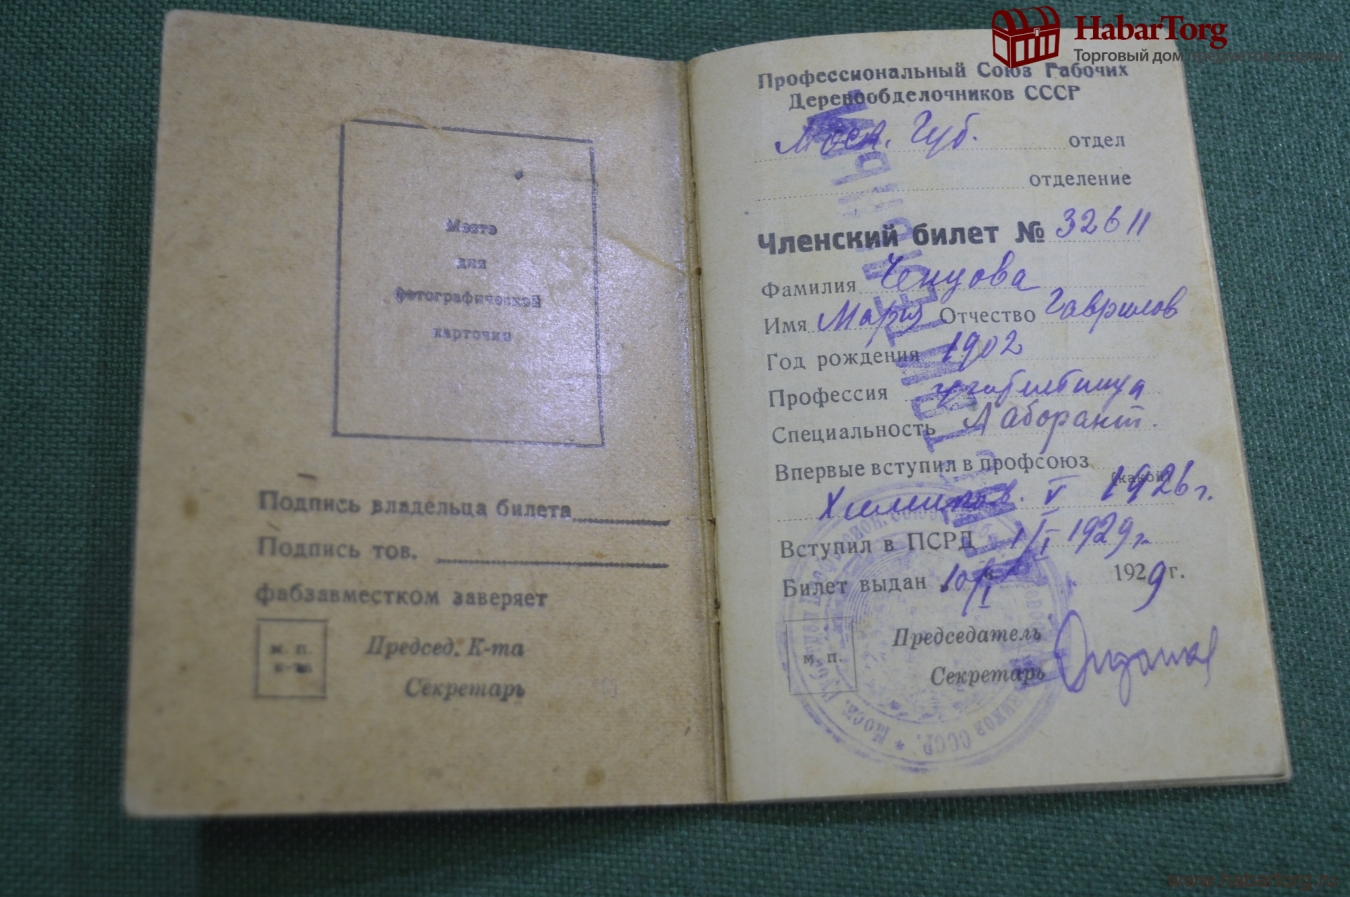 HabarTorg
Торговый дом
Место
для
фотографической
карточки
Подпись владельца билета
Подпись тов.
фабзавместком заверяет
м. п.
к-та
Председ. К-та
Секретарь
Профессиональный Союз Рабочих
Деревообделочников СССР
Моск. Губ. отдел
отделение
Членский билет № 32611
Фамилия Ченцова
Имя Мария Отчество Гаврилов
Год рождения 1902
Профессия
Специальность Лаборант.
Впервые вступил в профсоюз
(какой)
Химиков. V 1926 г.
Вступил в ПСРД 1/I 1929 г.
Билет выдан 10/I 1929 г.
м. п.
Председатель
Секретарь
www.habartorg.ru